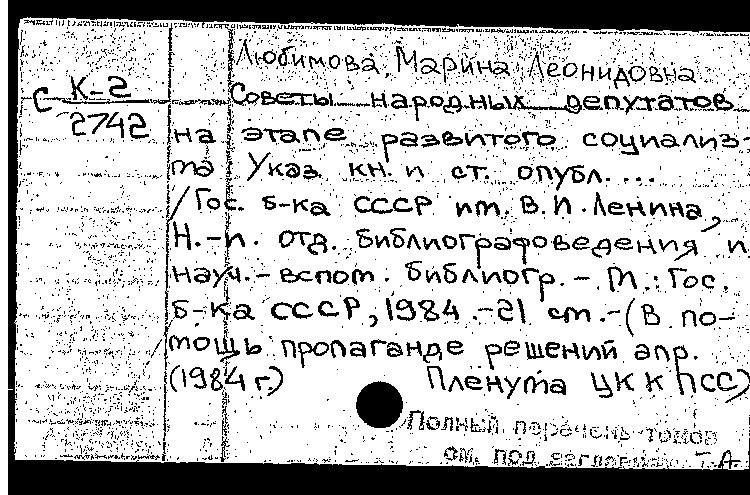 Любимова, Марина Леонидовна
С К-2
2742
Советы народных депутатов
на этапе развитого социализ-
ма Указ. кн. и ст. опубл. ...
/Гос. б-ка СССР им. В.И. Ленина,
Н.-и. отд. библиографоведения и
науч.-вспом. библиогр. - М.: Гос.
б-ка СССР, 1984.-21 см.-(В по-
мощь пропаганде решений апр.
(1984 г.) Пленума ЦК КПСС)
Полный перечень томов
см. под заглавием